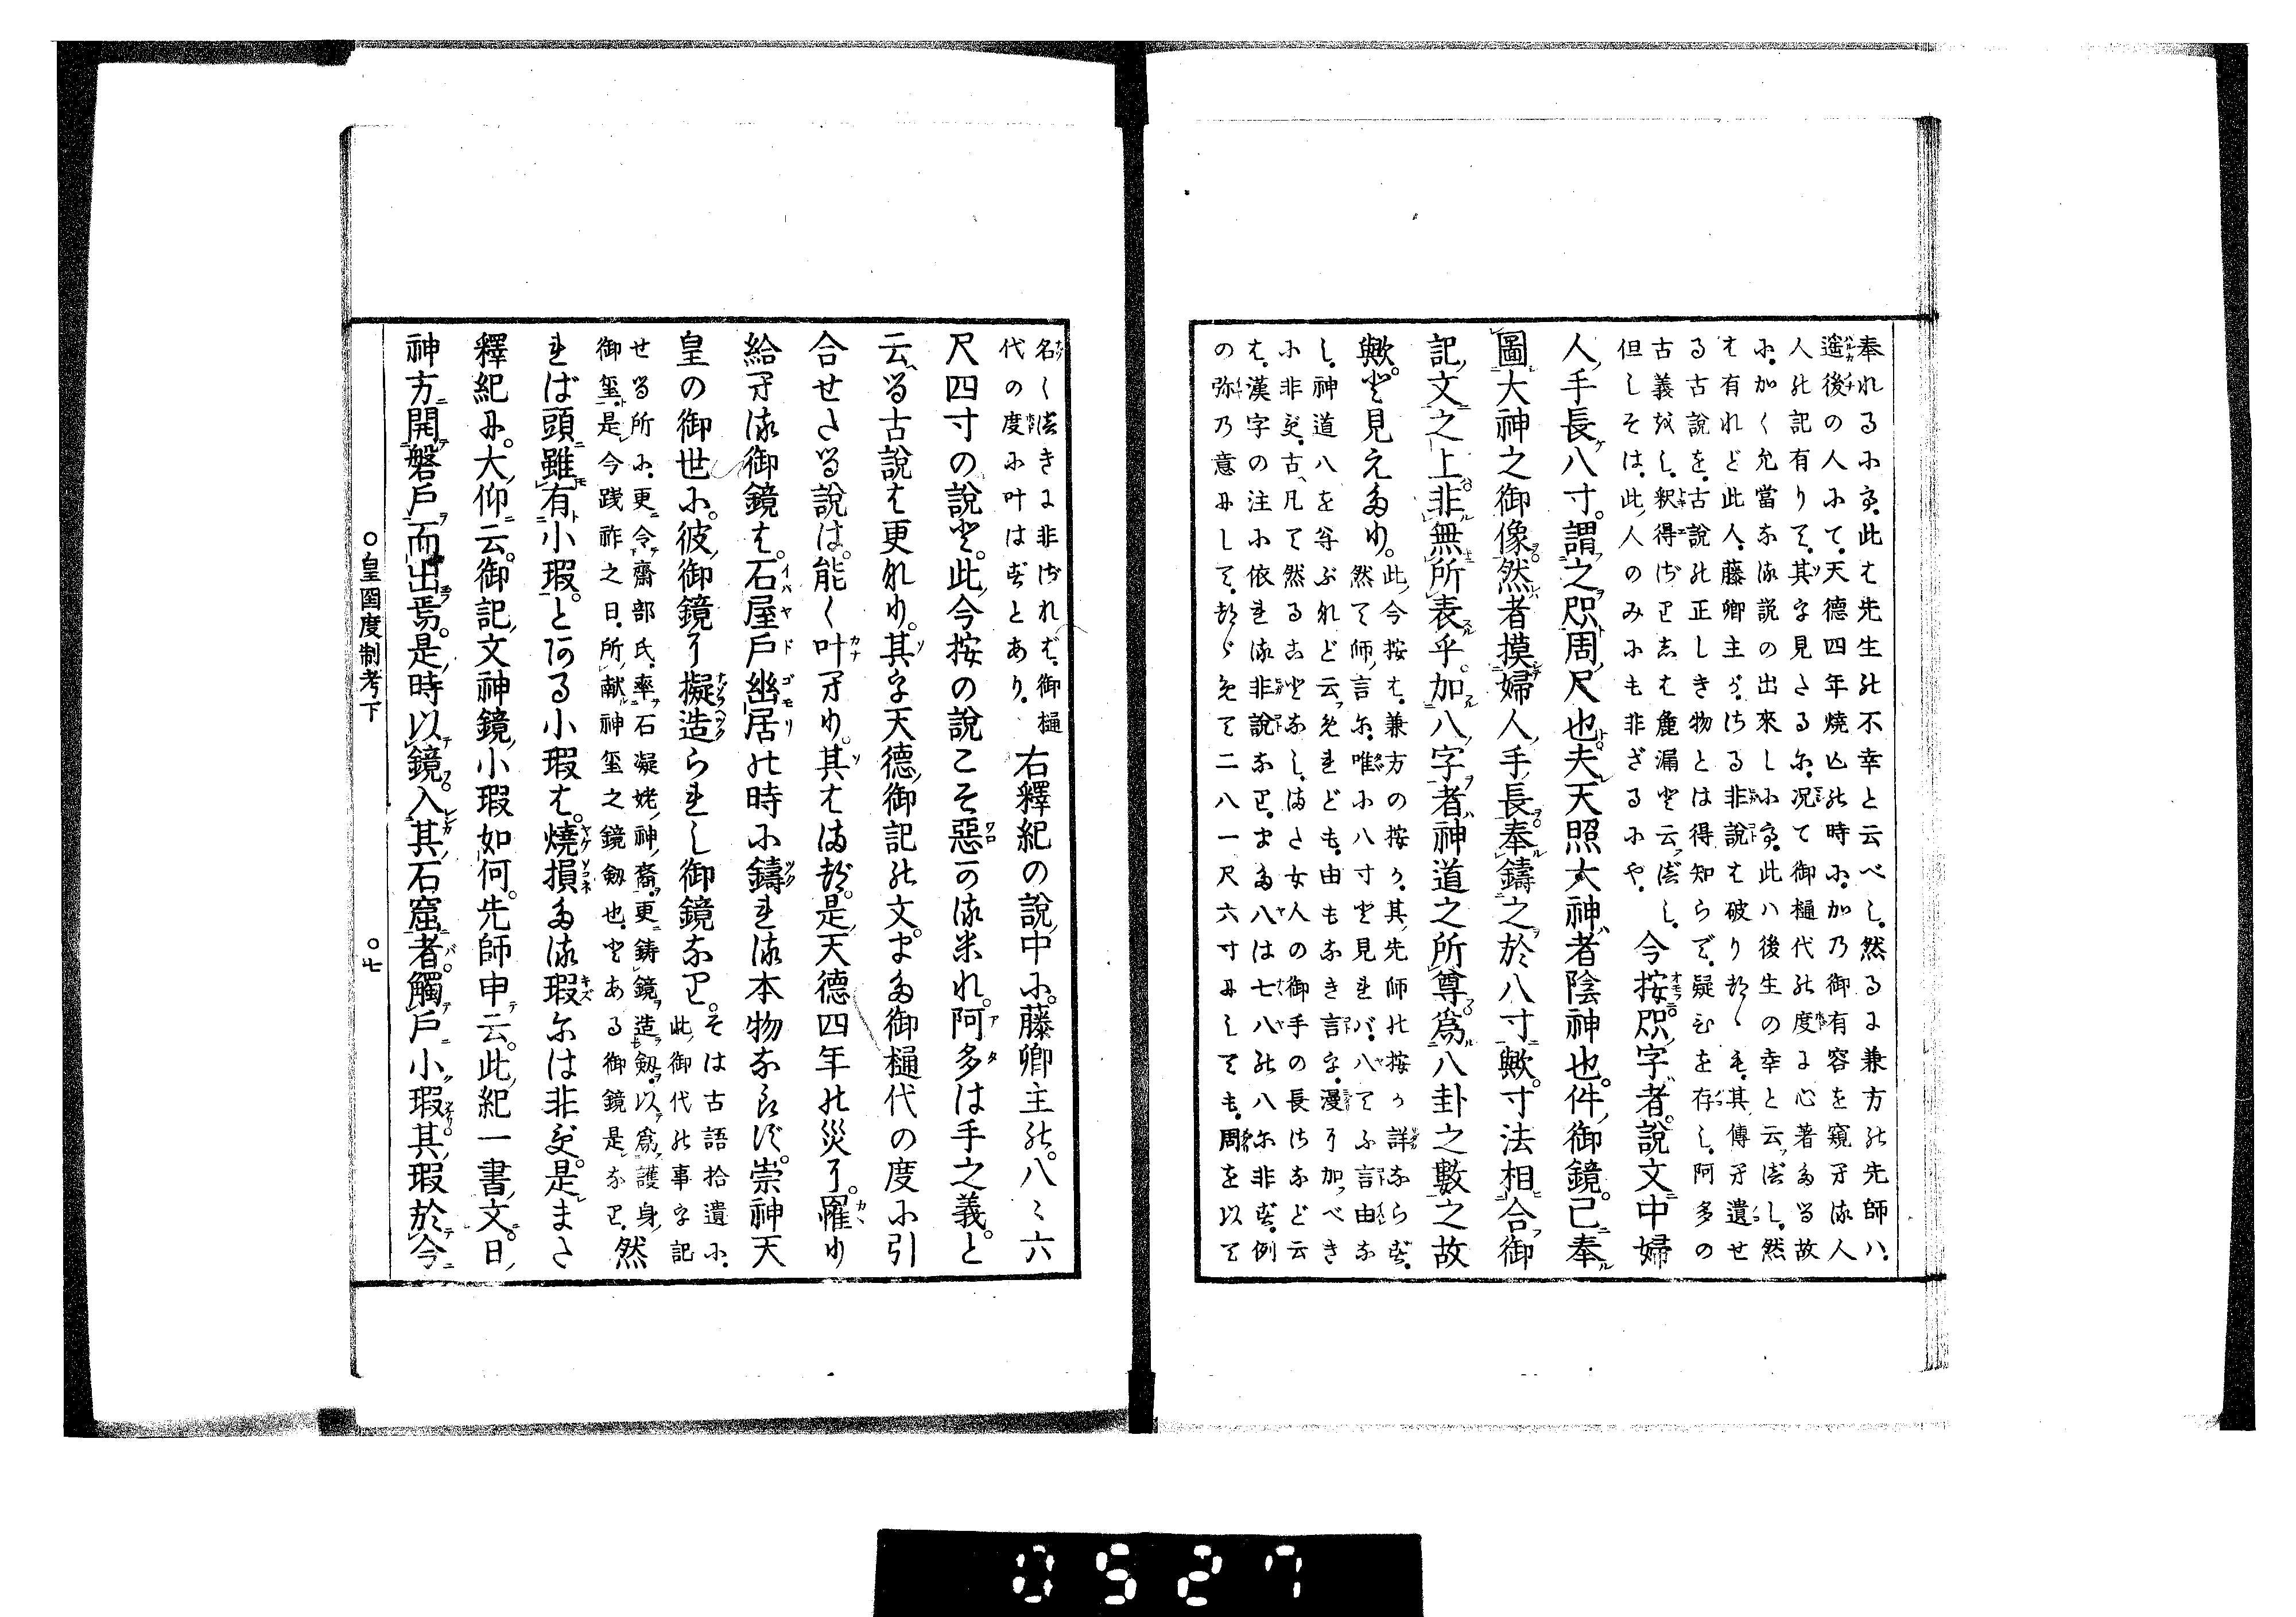 奉れるに𛂦。此は先生の不幸と云べし。然るに兼方の先師ハ。
遙後の人にて。天德四年燒亡の時に。加乃御有容を窺けむ人
人の記有りて。其を見さるに。况て御樋代の度に心著たる故
に。加く允當なる説の出來しに𛂦。此ハ後生の幸と云べし。然
は有れど此人。藤卿主が。ける非説は破りつゝも。其傳け遺せ
る古說を。古說の正しき物とは得知らで。疑ひを存し。阿多の
古義をし。釈得ざりしは麁漏と云べし。
但しそは。此人のみにも非ざるにや。
今按。咫字者。說文中婦
人手長八寸。謂之咫周尺也。夫天照大神者陰神也。件御鏡。已奉
圖大神之御像。然者摸婦人手長。奉鑄之於八寸歟。寸法相合御
記文之上。非無所表乎。加八字者。神道之所尊。爲八卦之數之故
歟。と見えたり。
此今按は。兼方の按か。其先師の按か詳ならず。
然て師言に。唯に八寸と見れバ。八てふ言由な
し。神道八を尊ぶれど云めれども。由もなき言を。漫に加べき
に非ず。古凡て然ることなし。はた女人の御手の長けなど云
は。漢字の注に依れる非說なり。また八は七八の八に非ず。例
の弥乃意にして。つゞめて二八一尺六寸にしても。周を以て
名くべきに非ざれば。御樋
代の度に叶はずとあり。
右釋紀の說中に。藤卿主の。八々六
尺四寸の說と。此今按の說こそ惡かるめれ。阿多は手之義。と
云へる古說は更なり。其を天德御記の文。また御樋代の度に引
合せたる說は。能く叶けり。其はまづ。是天德四年の災に。罹り
給ける御鏡は。石屋戶幽居の時に鑄れる本物ならず。崇神天
皇の御世に。彼御鏡に擬造られし御鏡なり。
そは古語拾遺に。
此御代の事を記
せる所に。更令齋部氏。率石凝姥神裔。更鑄鏡造劔。以爲護身
御璽。是今践祚之日。所獻神璽之鏡劔也。とある御鏡是なり。
然
れば頭雖有小瑕。とある小瑕は。燒損たる瑕には非ず。是また
釋紀に。大仰云。御記文神鏡小瑕如何。先師申云。此紀一書文曰。
神方開磐戶而出焉。是時以鏡。入其石窟者。觸戶小瑕。其瑕於今
〇皇國度制考下　〇七
0527